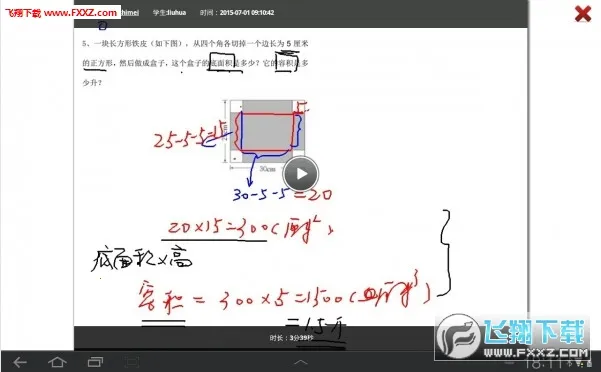 飞翔下载
www.FXXZ.com
shimei 学生:liuhua 时间:2015-07-01 09:10:42
5、一块长方形铁皮(如下图),从四个角各切掉一个边长为 5 厘米
的正方形,然后做成盒子,这个盒子的底面积是多少?它的容积是多
少升?
5
25-5-5=15
30cm
30-5-5=20
20×15=300(厘米²)
底面积×高
容积=300×5=1500(厘米³)
=1.5升
时长:3分39秒
飞翔下载
WWW.FXXZ.COM
18:11